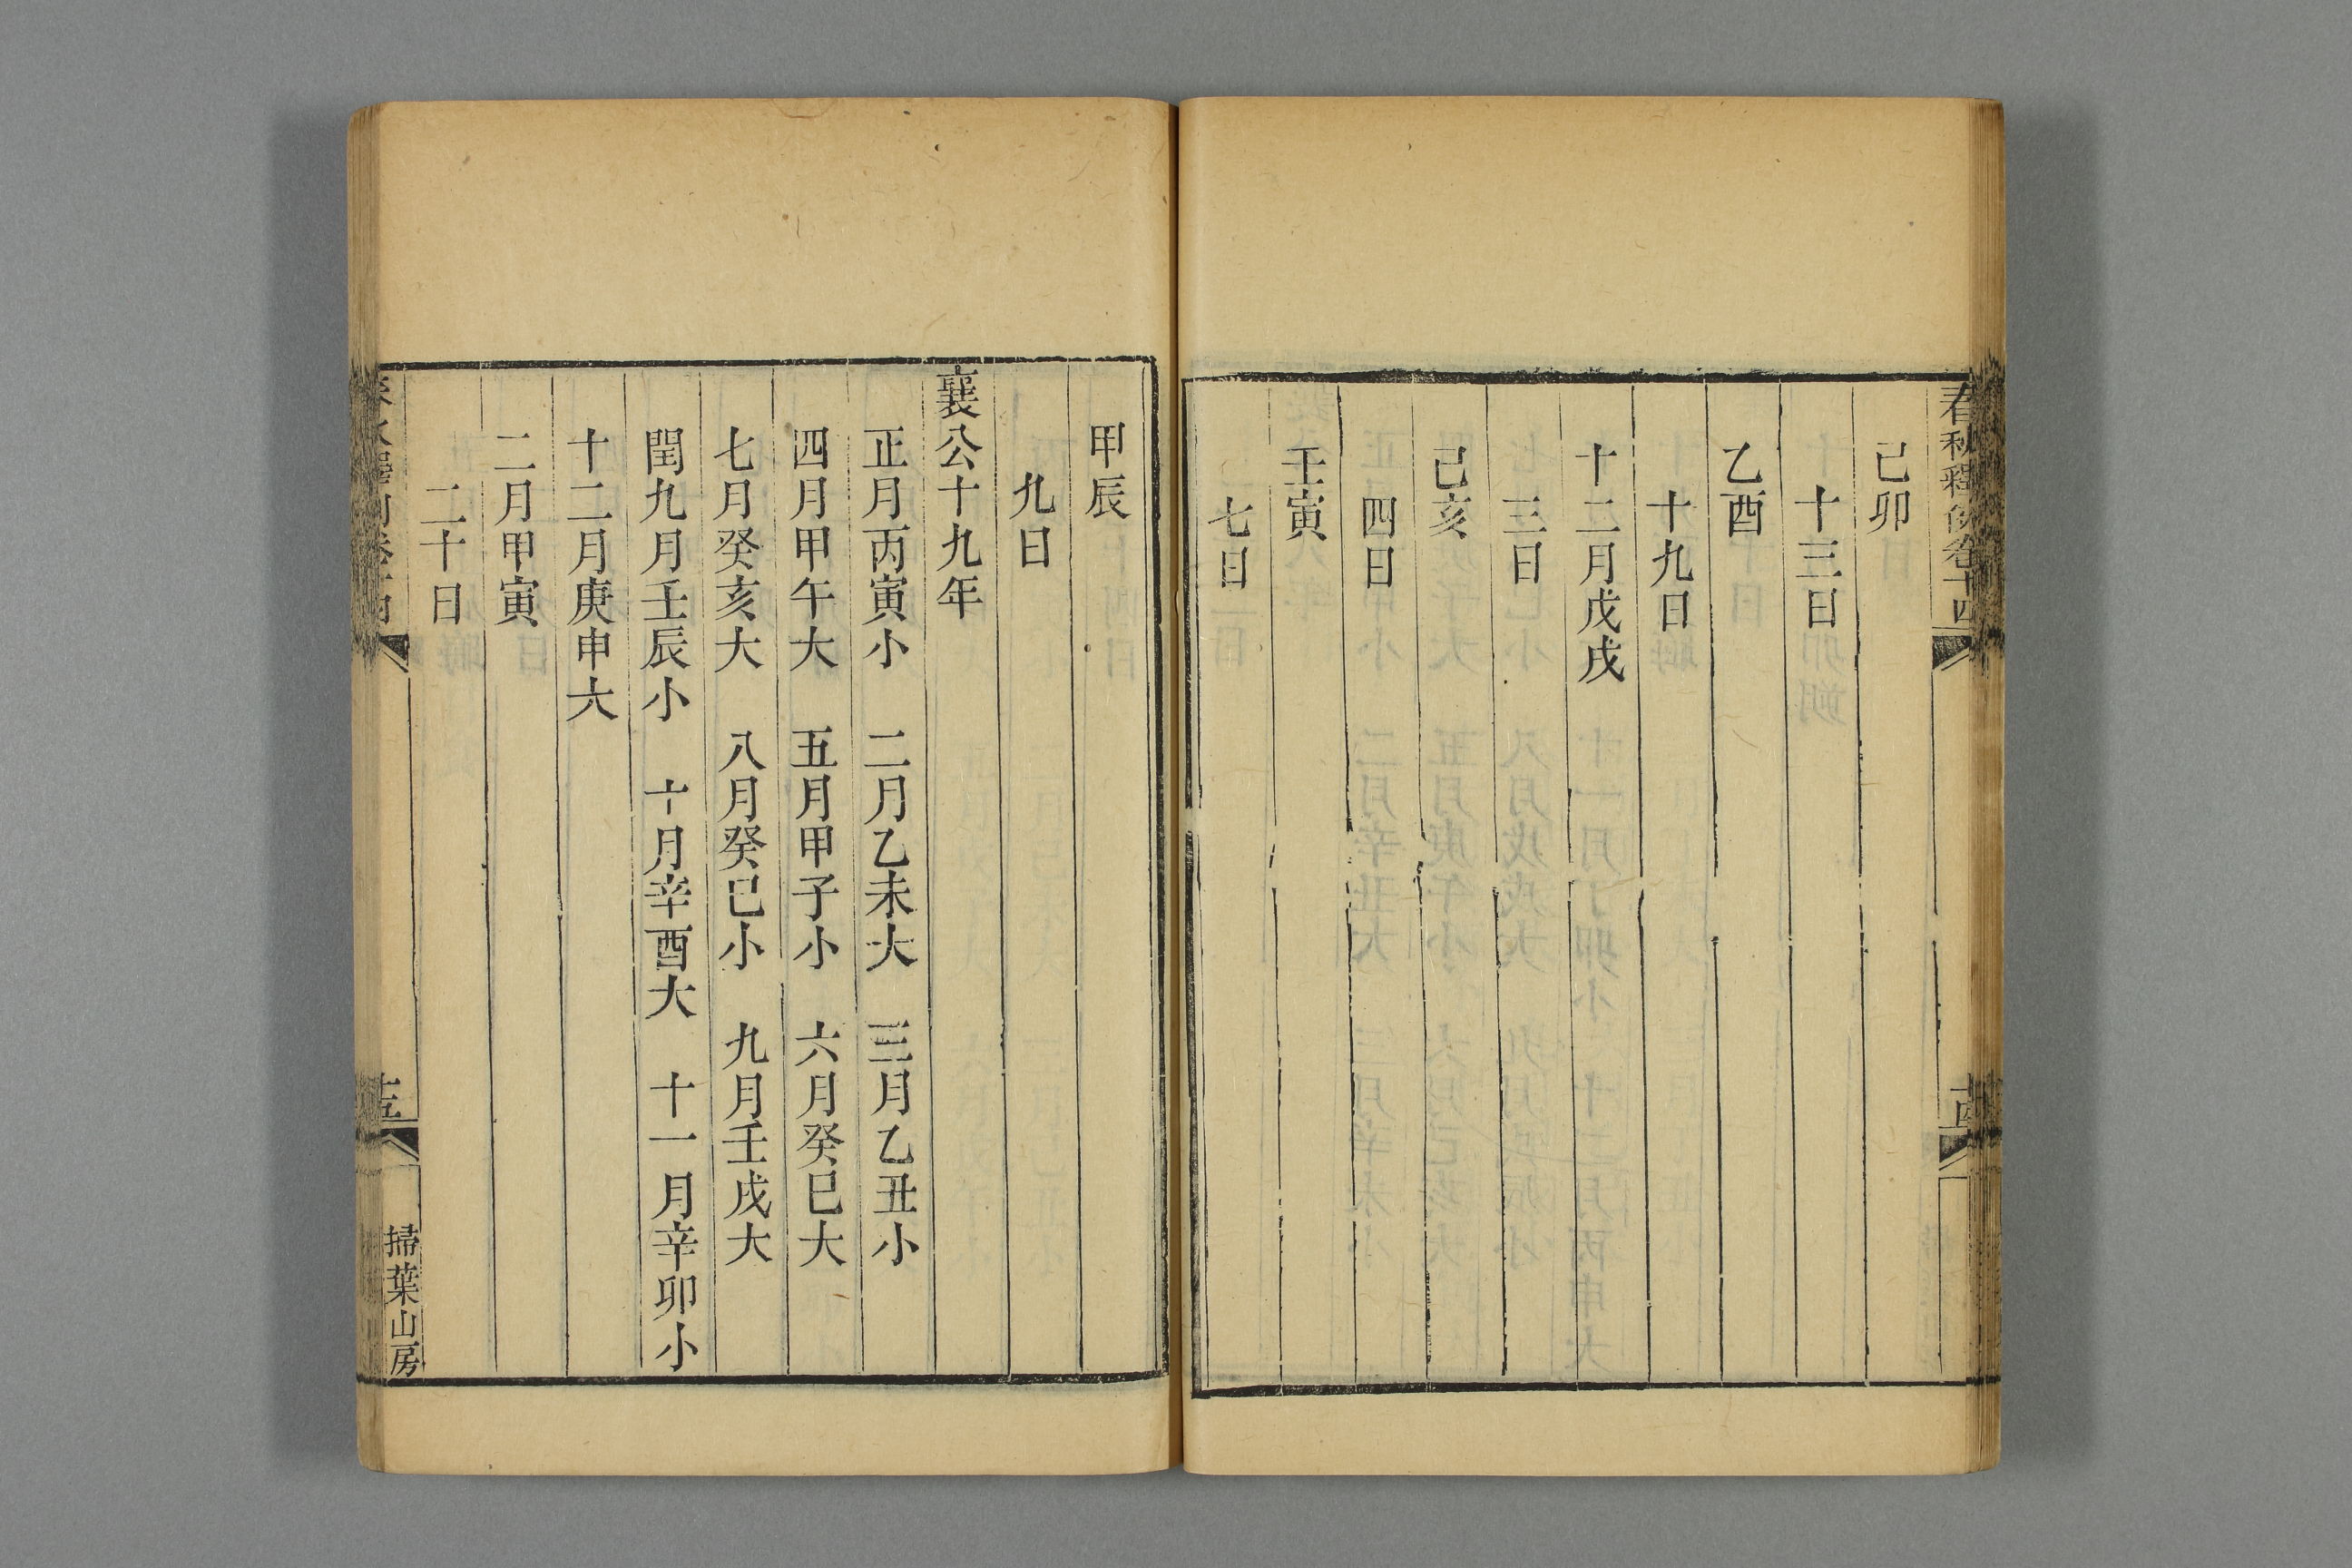 春秋釋例卷十四
己卯
十三日
乙酉
十九日
十二月戊戌
三日
己亥
四日
壬寅
七日
甲辰
九日
襄公十九年
正月丙寅小 二月乙未大 三月乙丑小
四月甲午大 五月甲子小 六月癸巳大
七月癸亥大 八月癸巳小 九月壬戌大
閏九月壬辰小 十月辛酉大 十一月辛卯小
十二月庚申大
二月甲寅
二十日
掃葉山房